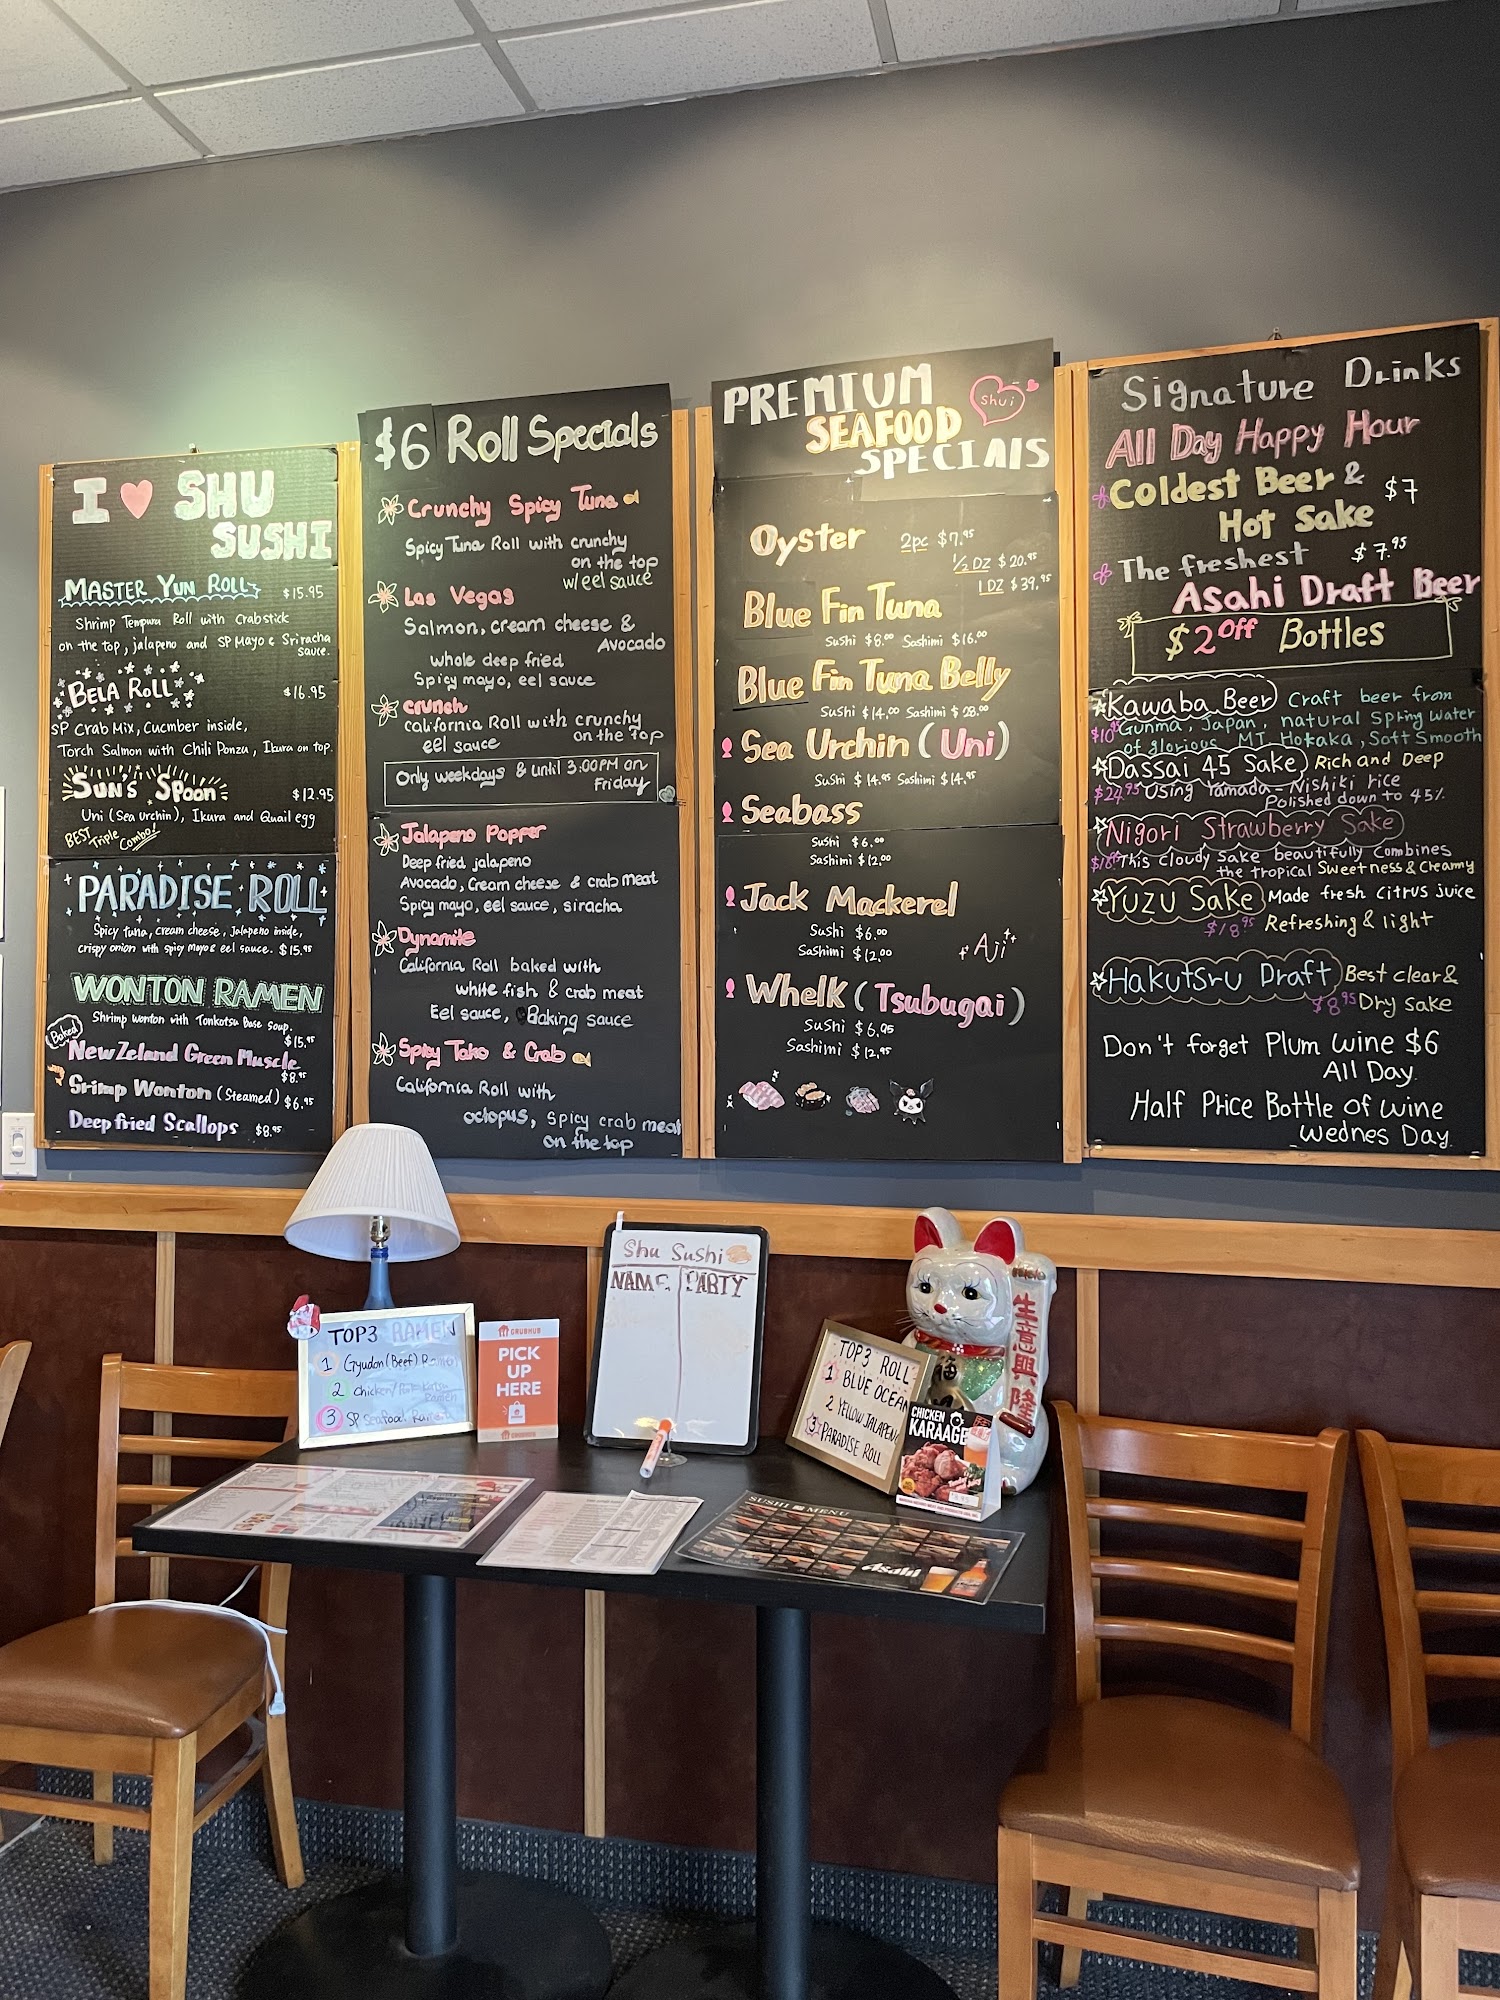 I ♥ SHU
SUSHI
MASTER YUN ROLL
$15.95
Shrimp Tempura Roll with Crabstick
on the top, jalapeno and SP Mayo & Sriracha
sauce.
BELA ROLL
$16.95
SP Crab Mix, Cucmber inside,
Torch Salmon with Chili Ponzu, Ikura on top.
SUN'S SPOON
$12.95
Uni (Sea urchin), Ikura and Quail egg
BEST Triple Combo!
PARADISE ROLL
Spicy tuna, cream cheese, Jalapeno inside,
crispy onion with spicy mayo & eel sauce. $15.95
WONTON RAMEN
Shrimp wonton with Tonkotsu Base soup.
$15.95
Baked
New Zeland Green Muscle
$8.95
Srimp Wonton (Steamed) $6.95
Deep fried Scallops $8.95
$6 Roll Specials
Crunchy Spicy Tuna
Spicy Tuna Roll with crunchy
on the top
w/eel sauce
Las Vegas
Salmon, cream cheese &
Avocado
whole deep fried
Spicy mayo, eel sauce
crunch
California Roll with crunchy
on the top
eel sauce
Only weekdays & until 3:00PM on
Friday
Jalapeno Popper
Deep fried jalapeno
Avocado, Cream cheese & crab meat
Spicy mayo, eel sauce, siracha
Dynamite
California Roll baked with
white fish & crab meat
Eel sauce, Baking sauce
Spicy Tako & Crab
California Roll with
octopus, spicy crab meat
on the top
PREMIUM
SEAFOOD
SPECIAlS
Shui
Oyster 2pc $7.95
1/2 DZ $20.95
1 DZ $39.95
Blue Fin Tuna
Sushi $8.00 Sashimi $16.00
Blue Fin Tuna Belly
Sushi $14.00 Sashimi $28.00
Sea Urchin (Uni)
Sushi $14.95 Sashimi $14.95
Seabass
Sushi $6.00
Sashimi $12.00
Jack Mackerel
Sushi $6.00
Sashimi $12.00
Aji
Whelk (Tsubugai)
Sushi $6.95
Sashimi $12.95
Signature Drinks
All Day Happy Hour
Coldest Beer &
Hot Sake
$7
The freshest $7.95
Asahi Draft Beer
$2 off Bottles
Kawaba Beer Craft beer from
Gunma, Japan, natural Spring water
of glorious MT. Hotaka, Soft Smooth
Dassai 45 Sake Rich and Deep
$24.95 Using Yamada-Nishiki rice
Polished down to 45%
Nigori Strawberry Sake
This cloudy Sake beautifully combines
the tropical Sweetness & Creamy
Yuzu Sake Made fresh citrus juice
$18.95 Refreshing & light
Hakutsru Draft Best clear &
$8.95 Dry sake
Don't forget Plum wine $6
All Day.
Half Price Bottle of wine
Wednes Day.
TOP3 RAMEN
1 Gyudon (Beef) Ramen
2 Chicken/Pork Katsu
Ramen
3 SP Seafood Ramen
GRUBHUB
PICK
UP
HERE
GRUBHUB
Shu Sushi
NAME PARTY
TOP3 ROLL
1 BLUE OCEAN
2 YELLOW JALAPENO
3 PARADISE ROLL
生意興隆
CHICKEN
KARAAGE
SUSHI MENU
Asahi